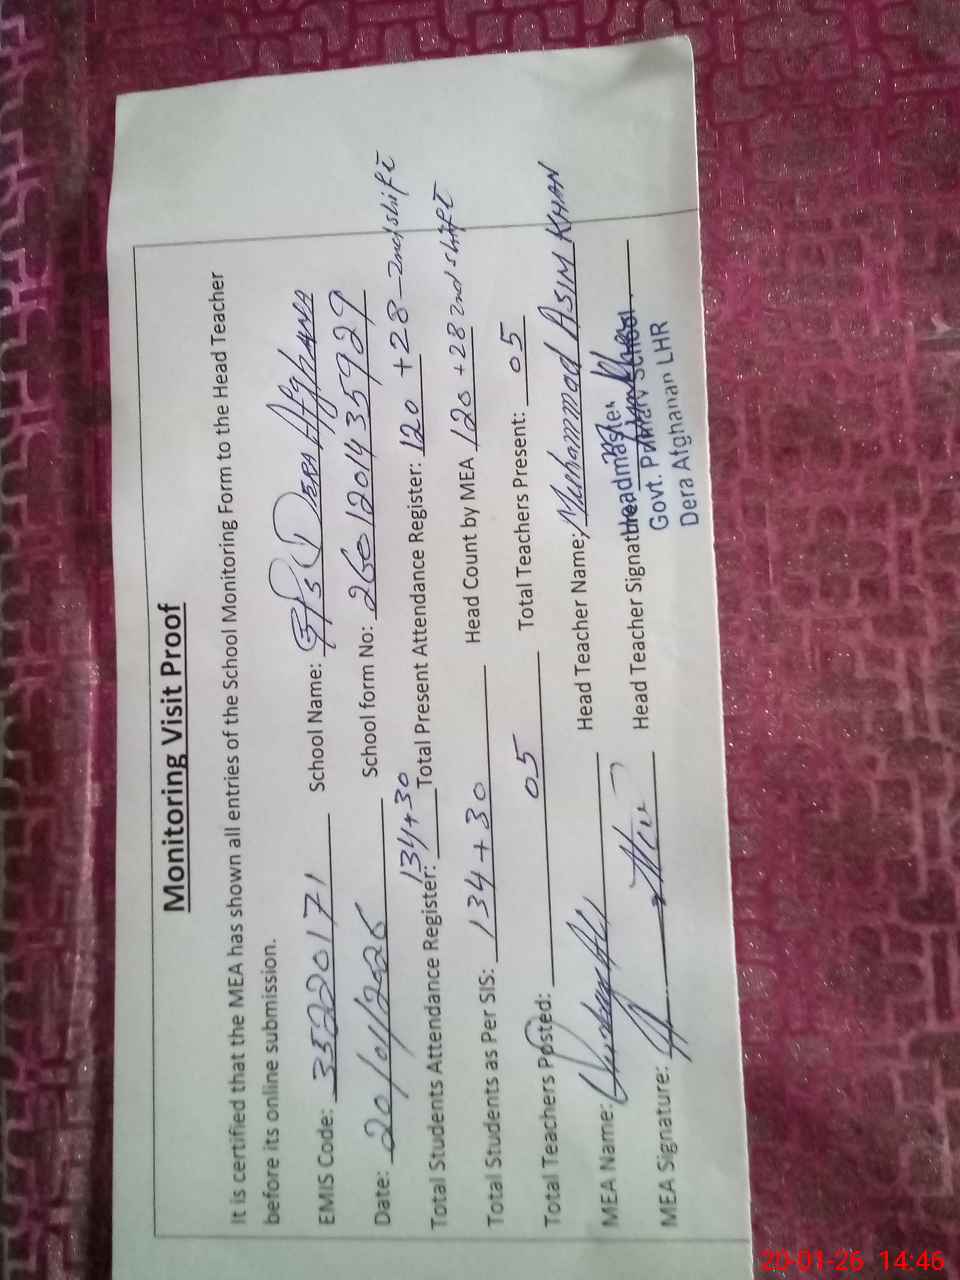 Monitoring Visit Proof
It is certified that the MEA has shown all entries of the School Monitoring Form to the Head Teacher
before its online submission.
EMIS Code: 35220171 School Name: GPS DERA AfghANA
Date: 20/01/2026 School form No: 2601201435929
Total Students Attendance Register: 134+30 Total Present Attendance Register: 120 +28 - 2nd shift
Total Students as Per SIS: 134+30 Head Count by MEA 120 +28 2nd shift
Total Teachers Posted: 05 Total Teachers Present: 05
MEA Name: Head Teacher Name: Muhammad ASIM KHAN
MEA Signature: Head Teacher Signature
Headmaster
Govt. Primary School
Dera Afghanan LHR
20-01-26 14:46